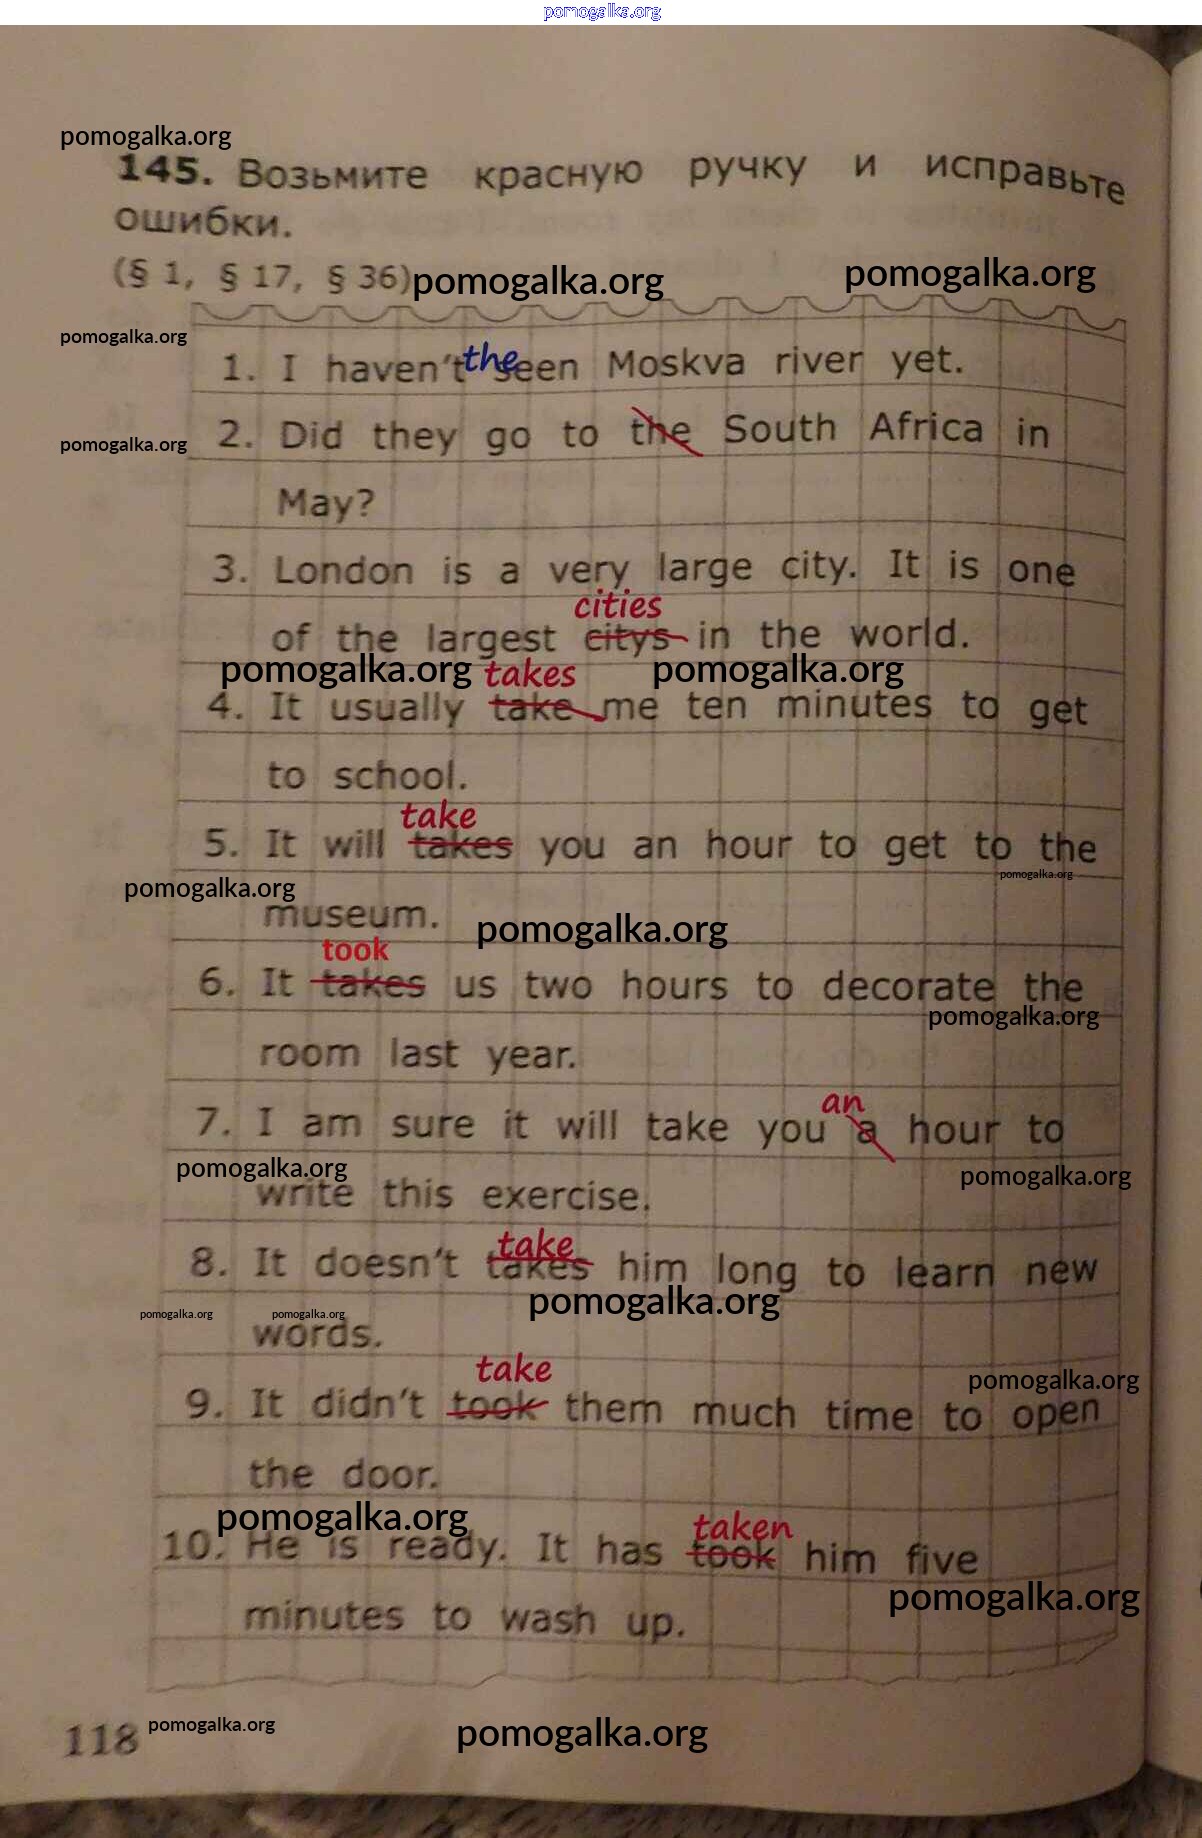 pomogalka.org
pomogalka.org
145. Возьмите красную ручку и исправьте
ошибки.
(§ 1, § 17, § 36) pomogalka.org pomogalka.org
pomogalka.org
1. I haven't the seen Moskva river yet.
2. Did they go to the South Africa in
pomogalka.org
May?
3. London is a very large city. It is one
cities
of the largest citys in the world.
pomogalka.org takes pomogalka.org
4. It usually take me ten minutes to get
to school.
take
5. It will takes you an hour to get to the
pomogalka.org
pomogalka.org
museum. pomogalka.org
took
6. It takes us two hours to decorate the
pomogalka.org
room last year.
an
7. I am sure it will take you a hour to
pomogalka.org pomogalka.org
write this exercise.
take
8. It doesn't takes him long to learn new
pomogalka.org
pomogalka.org pomogalka.org
words.
take
pomogalka.org
9. It didn't took them much time to open
the door.
pomogalka.org
taken
10. He is ready. It has took him five
pomogalka.org
minutes to wash up.
118 pomogalka.org pomogalka.org